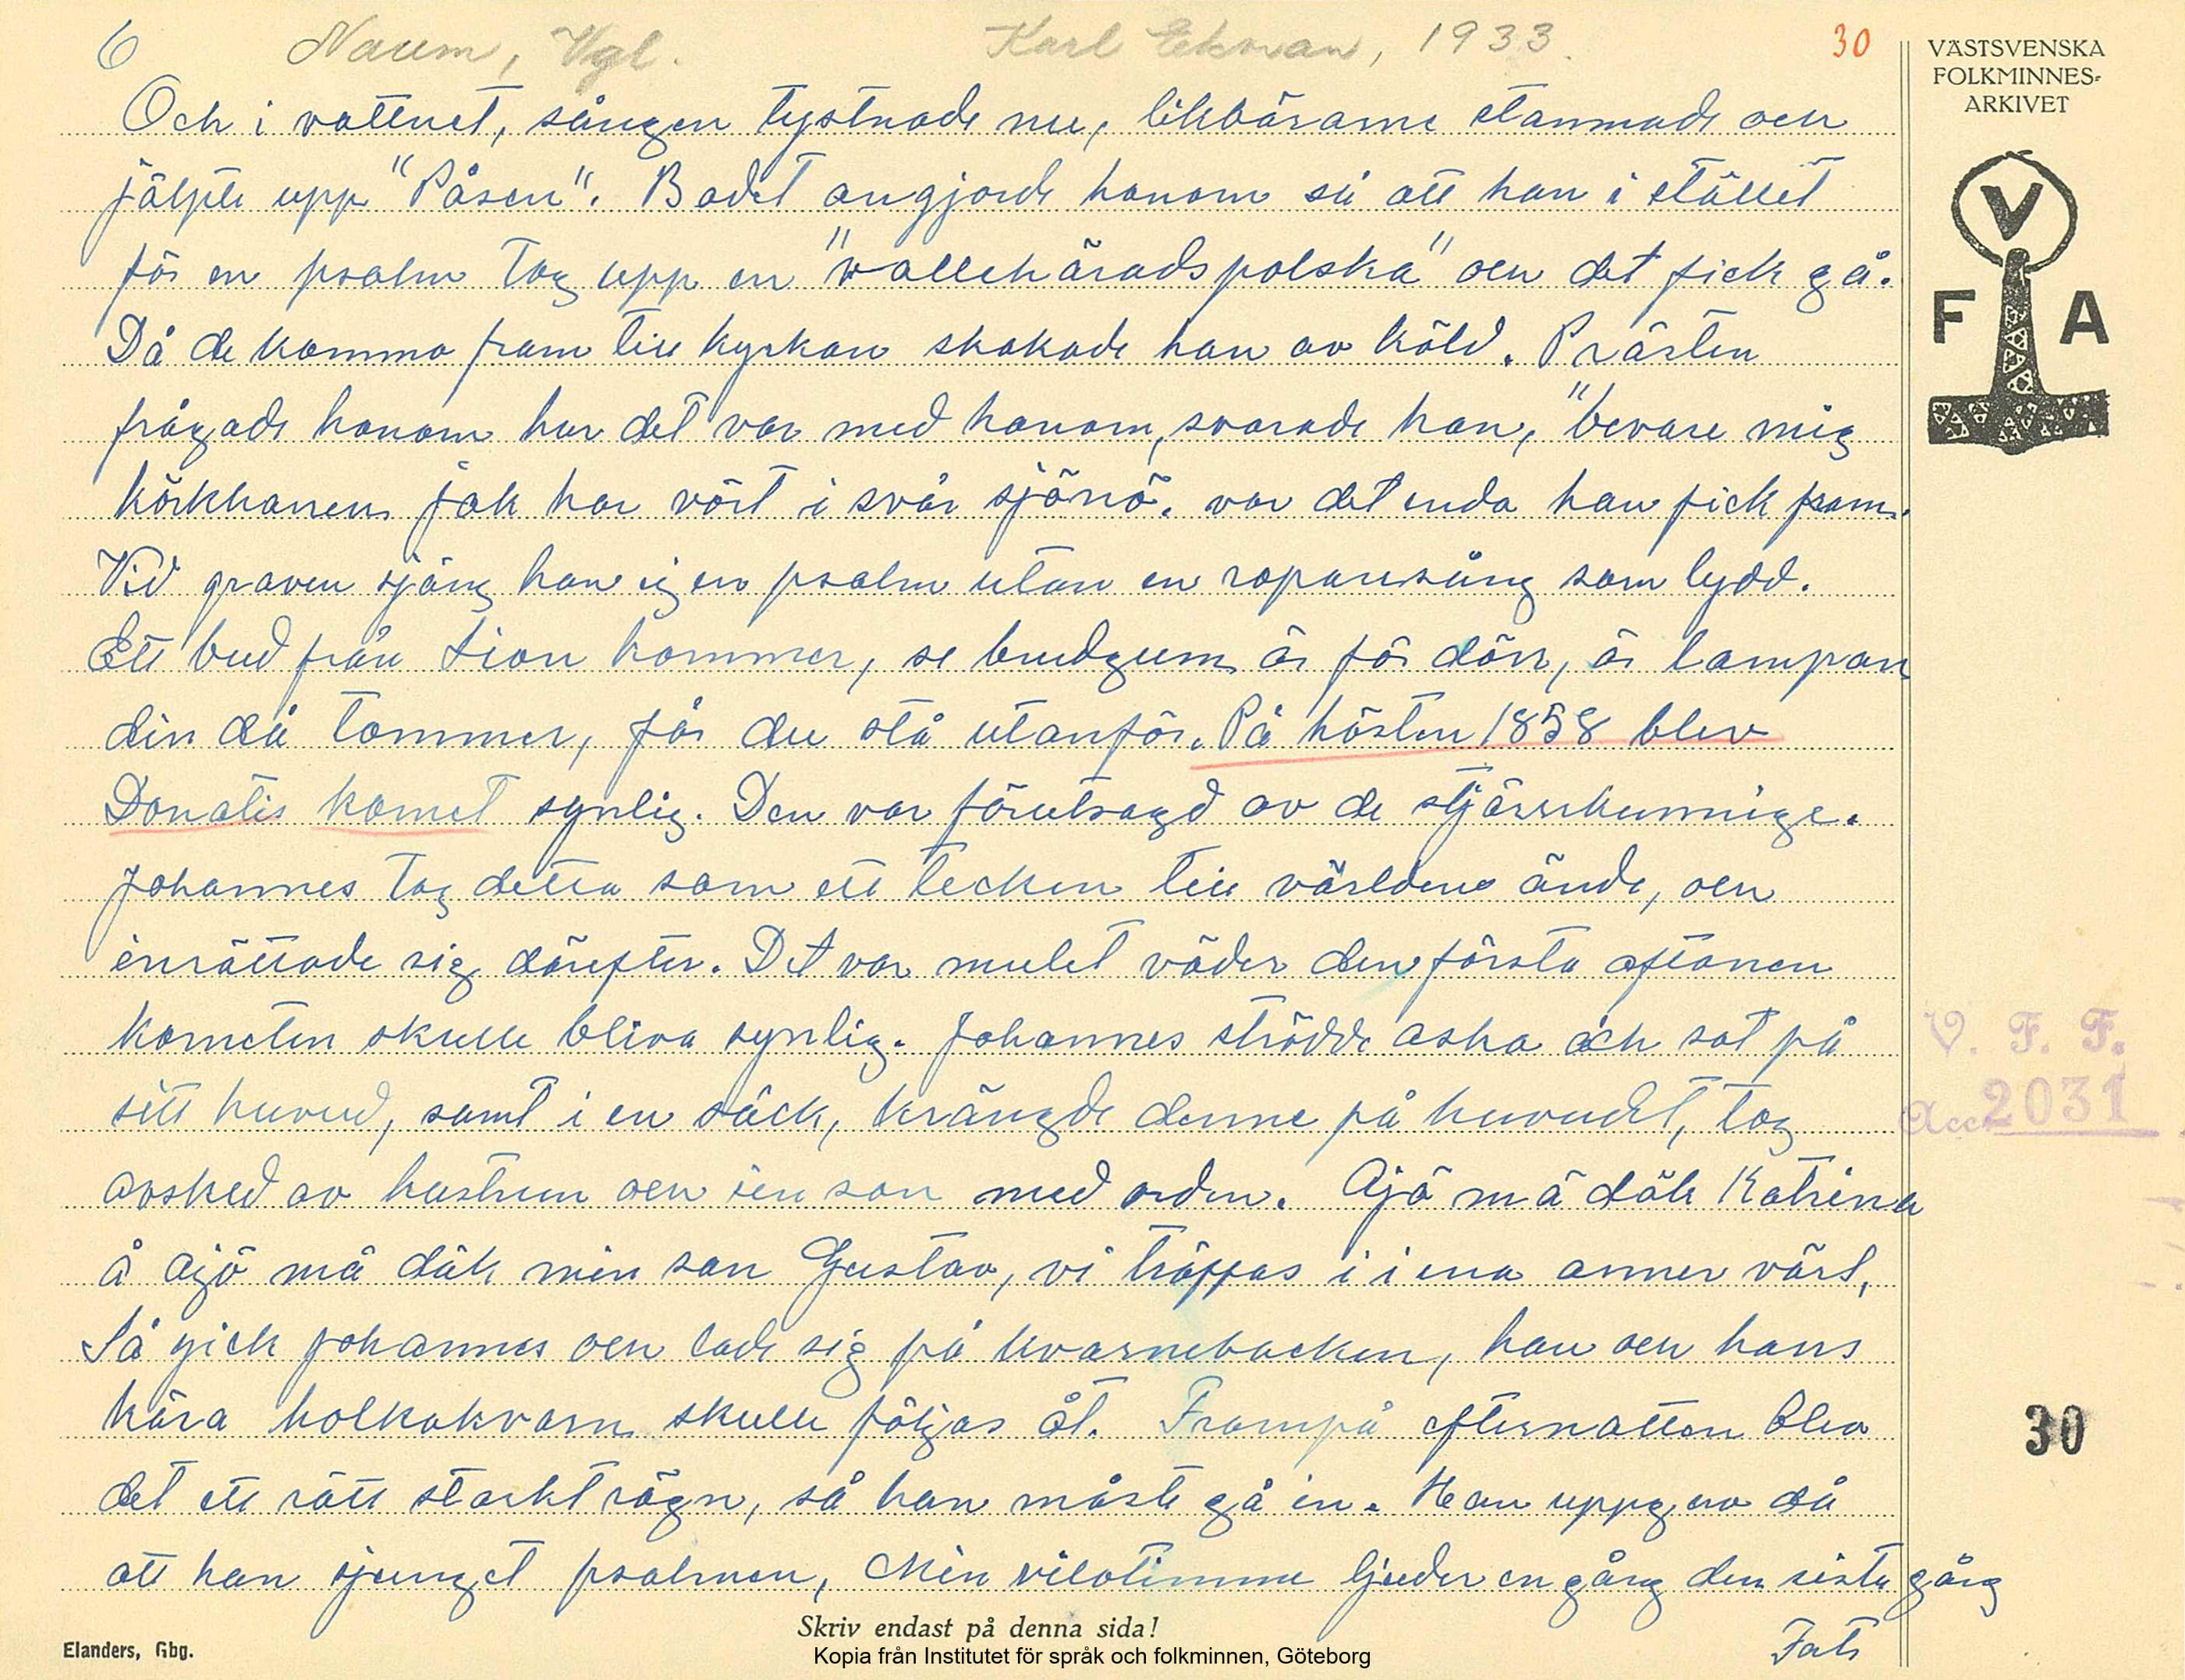 6 Naum, Vgl. Karl Ekman, 1933. 30
VÄSTSVENSKA
FOLKMINNES-
ARKIVET
V
F A
Och i vattnet, sången tystnade nu, likbärarne stannade och
jälpte upp "Påsen". Badet angjorde honom så att han i stället
för en psalm tog upp en "vallehäradspolska" och det fick gå.
Då de kommo fram till kyrkan skakade han av köld. Prästen
frågade honom hur det var med honom, svarade han, "bevare mig
körkhanen jak har vört i svår sjönö. var det enda han fick fram.
Vid graven sjöng han ej en psalm utan en roparesång som lydd.
Ett bud från Sion kommer, se brudgum är för dörr, är lampan
din då tommer, får du stå utanför. På hösten 1858 blev
Donatis komet synlig. Den var förutsagd av de stjärnkunnige.
Johannes tog detta som ett tecken till världens ände, och
inrättade sig därefter. Det var mulet väder den första aftonen
kometen skulle bliva synlig. Johannes strödde aska och sot på
sitt huvud, samt i en säck, krängde denne på huvudet, tog
avsked av hustrun och sin son med orden. Ajö må däk Katrina
å ajö må däk min son Gustav, vi träffas i i ena anner värl,
Så gick Johannes och lade sig på kvarnebacken, han och hans
kära holkakvarn skulle följas åt. Frampå efternatten blev
det ett rätt starkt rägn, så han måste gå in. Han uppgav då
att han sjunget psalmen, Min vilotimme ljuder en gång den sista gång
Fats
V. F. F.
Acc. 2031
30
Skriv endast på denna sida!
Elanders, Gbg.
Kopia från Institutet för språk och folkminnen, Göteborg